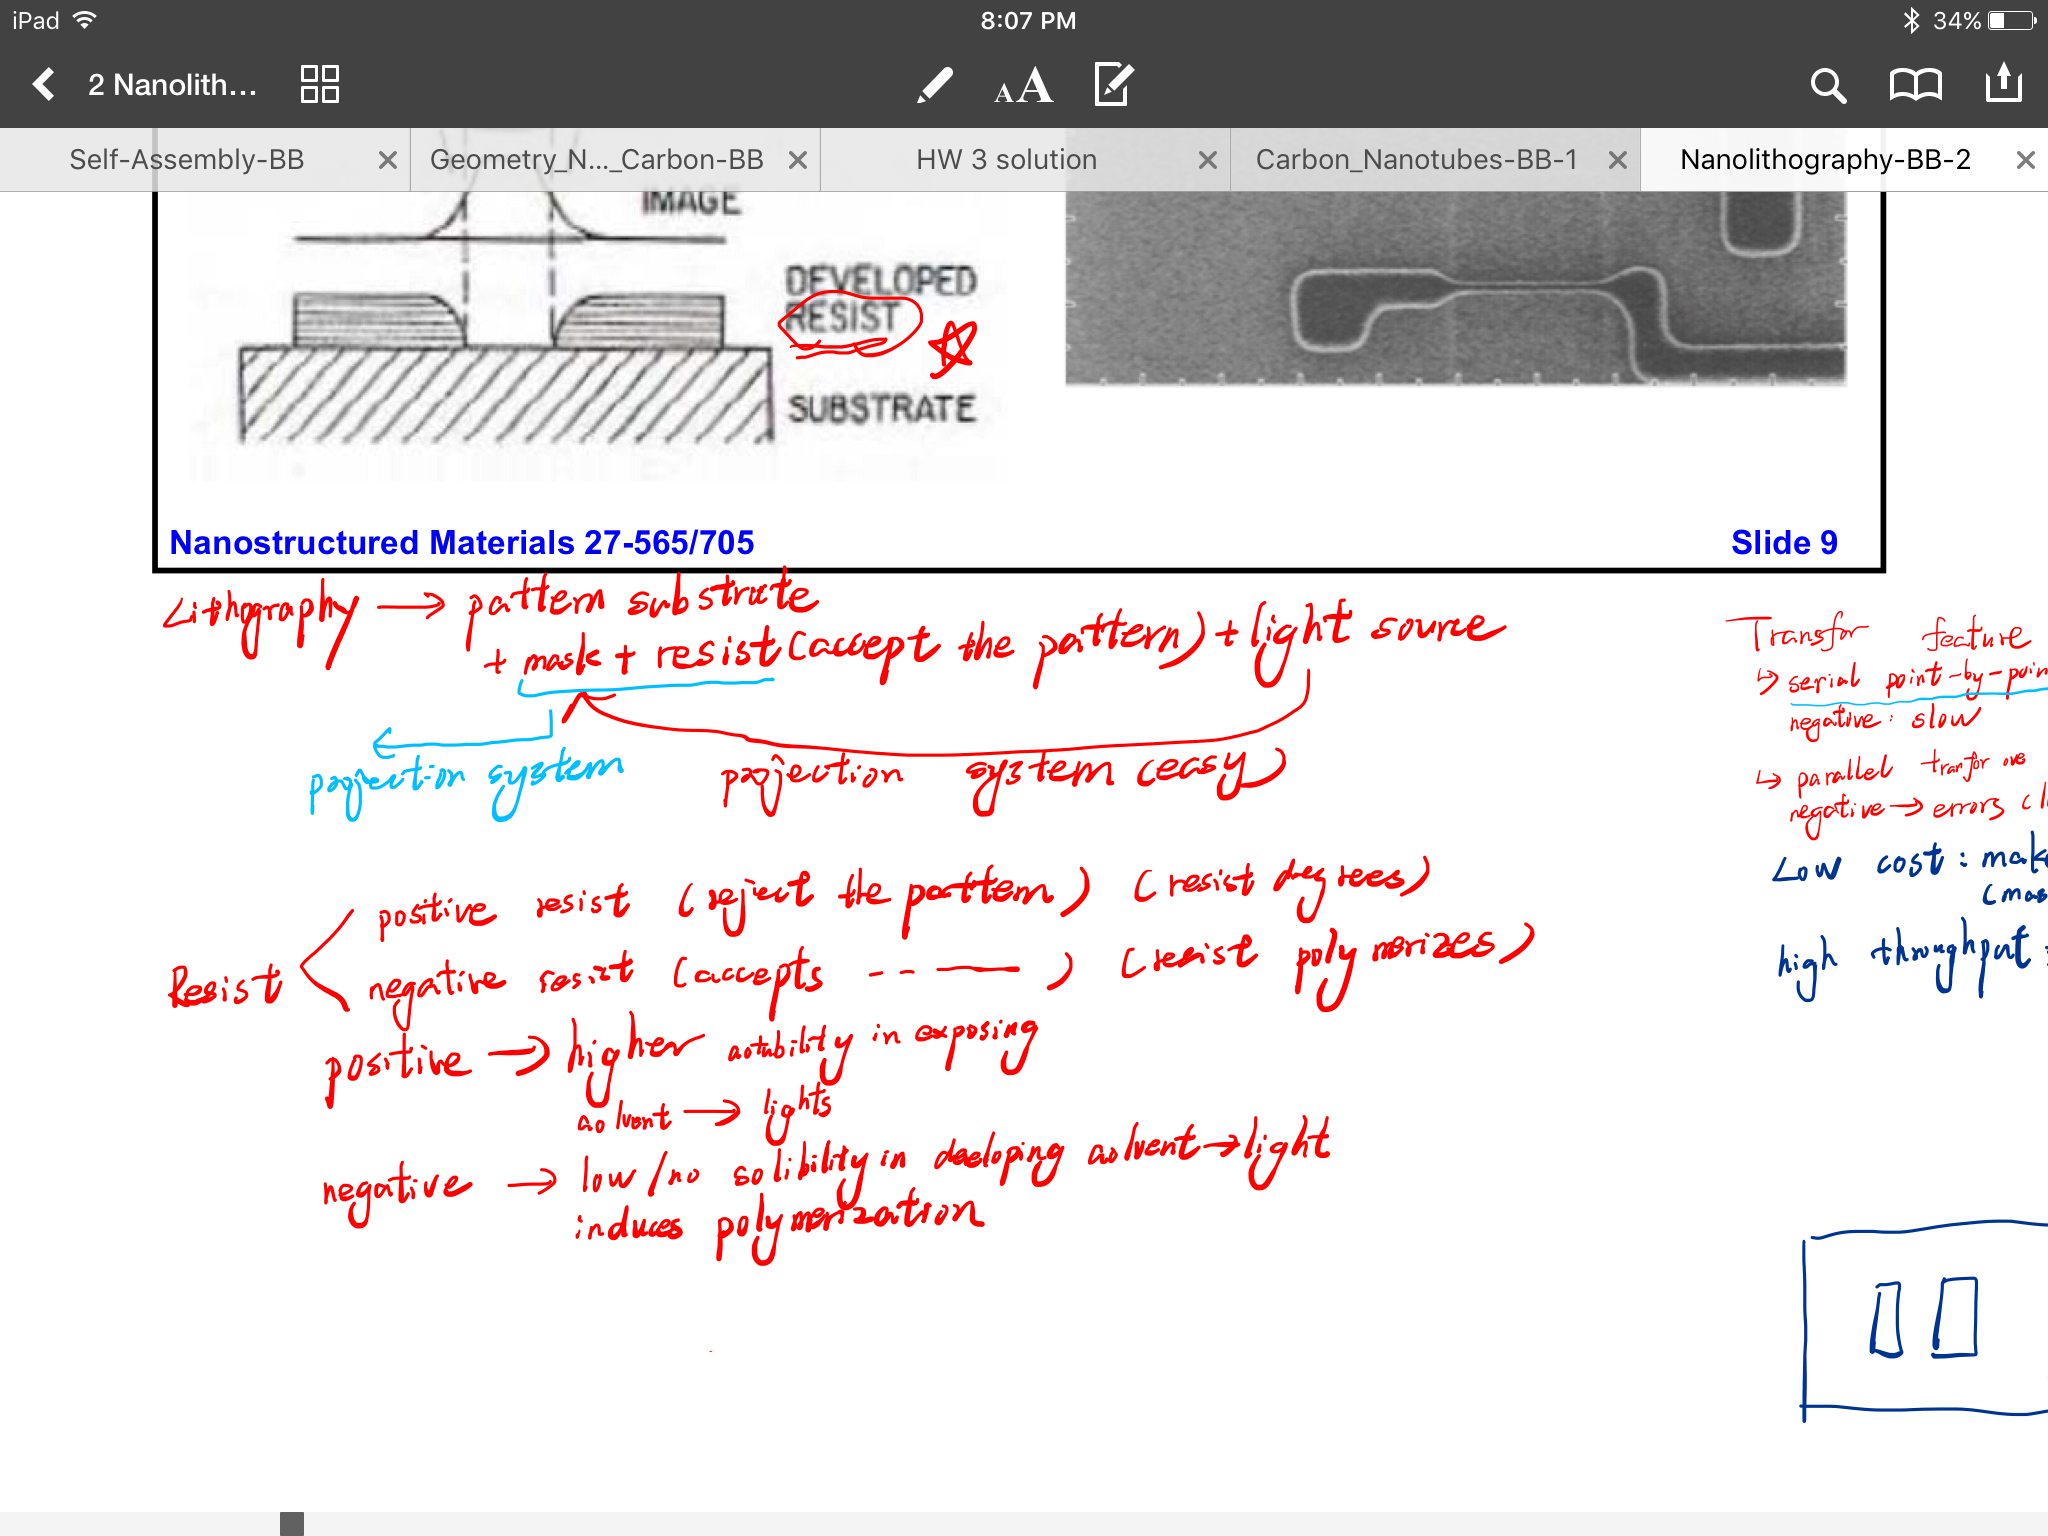 iPad
8:07 PM
34%
2 Nanolith...
AA
Self-Assembly-BB
Geometry_N..._Carbon-BB
HW 3 solution
Carbon_Nanotubes-BB-1
Nanolithography-BB-2
IMAGE
DEVELOPED
RESIST
SUBSTRATE
Nanostructured Materials 27-565/705
Slide 9
Lithography → pattern substrate
+ mask + resist (accept the pattern) + light source
projection system
projection system (easy)
Resist
positive resist (reject the pattern) (resist degrees)
negative resist (accepts -- — ) (resist polymerizes)
positive → higher in exposing
solvent → lights
negative → low/no solibility in solvent → light
induces polymerization
Transfor feature
↳ serial point-by-poin
negative: slow
↳ parallel tranfor
negative → errors (
Low cost: mak
(mas
high throughput: